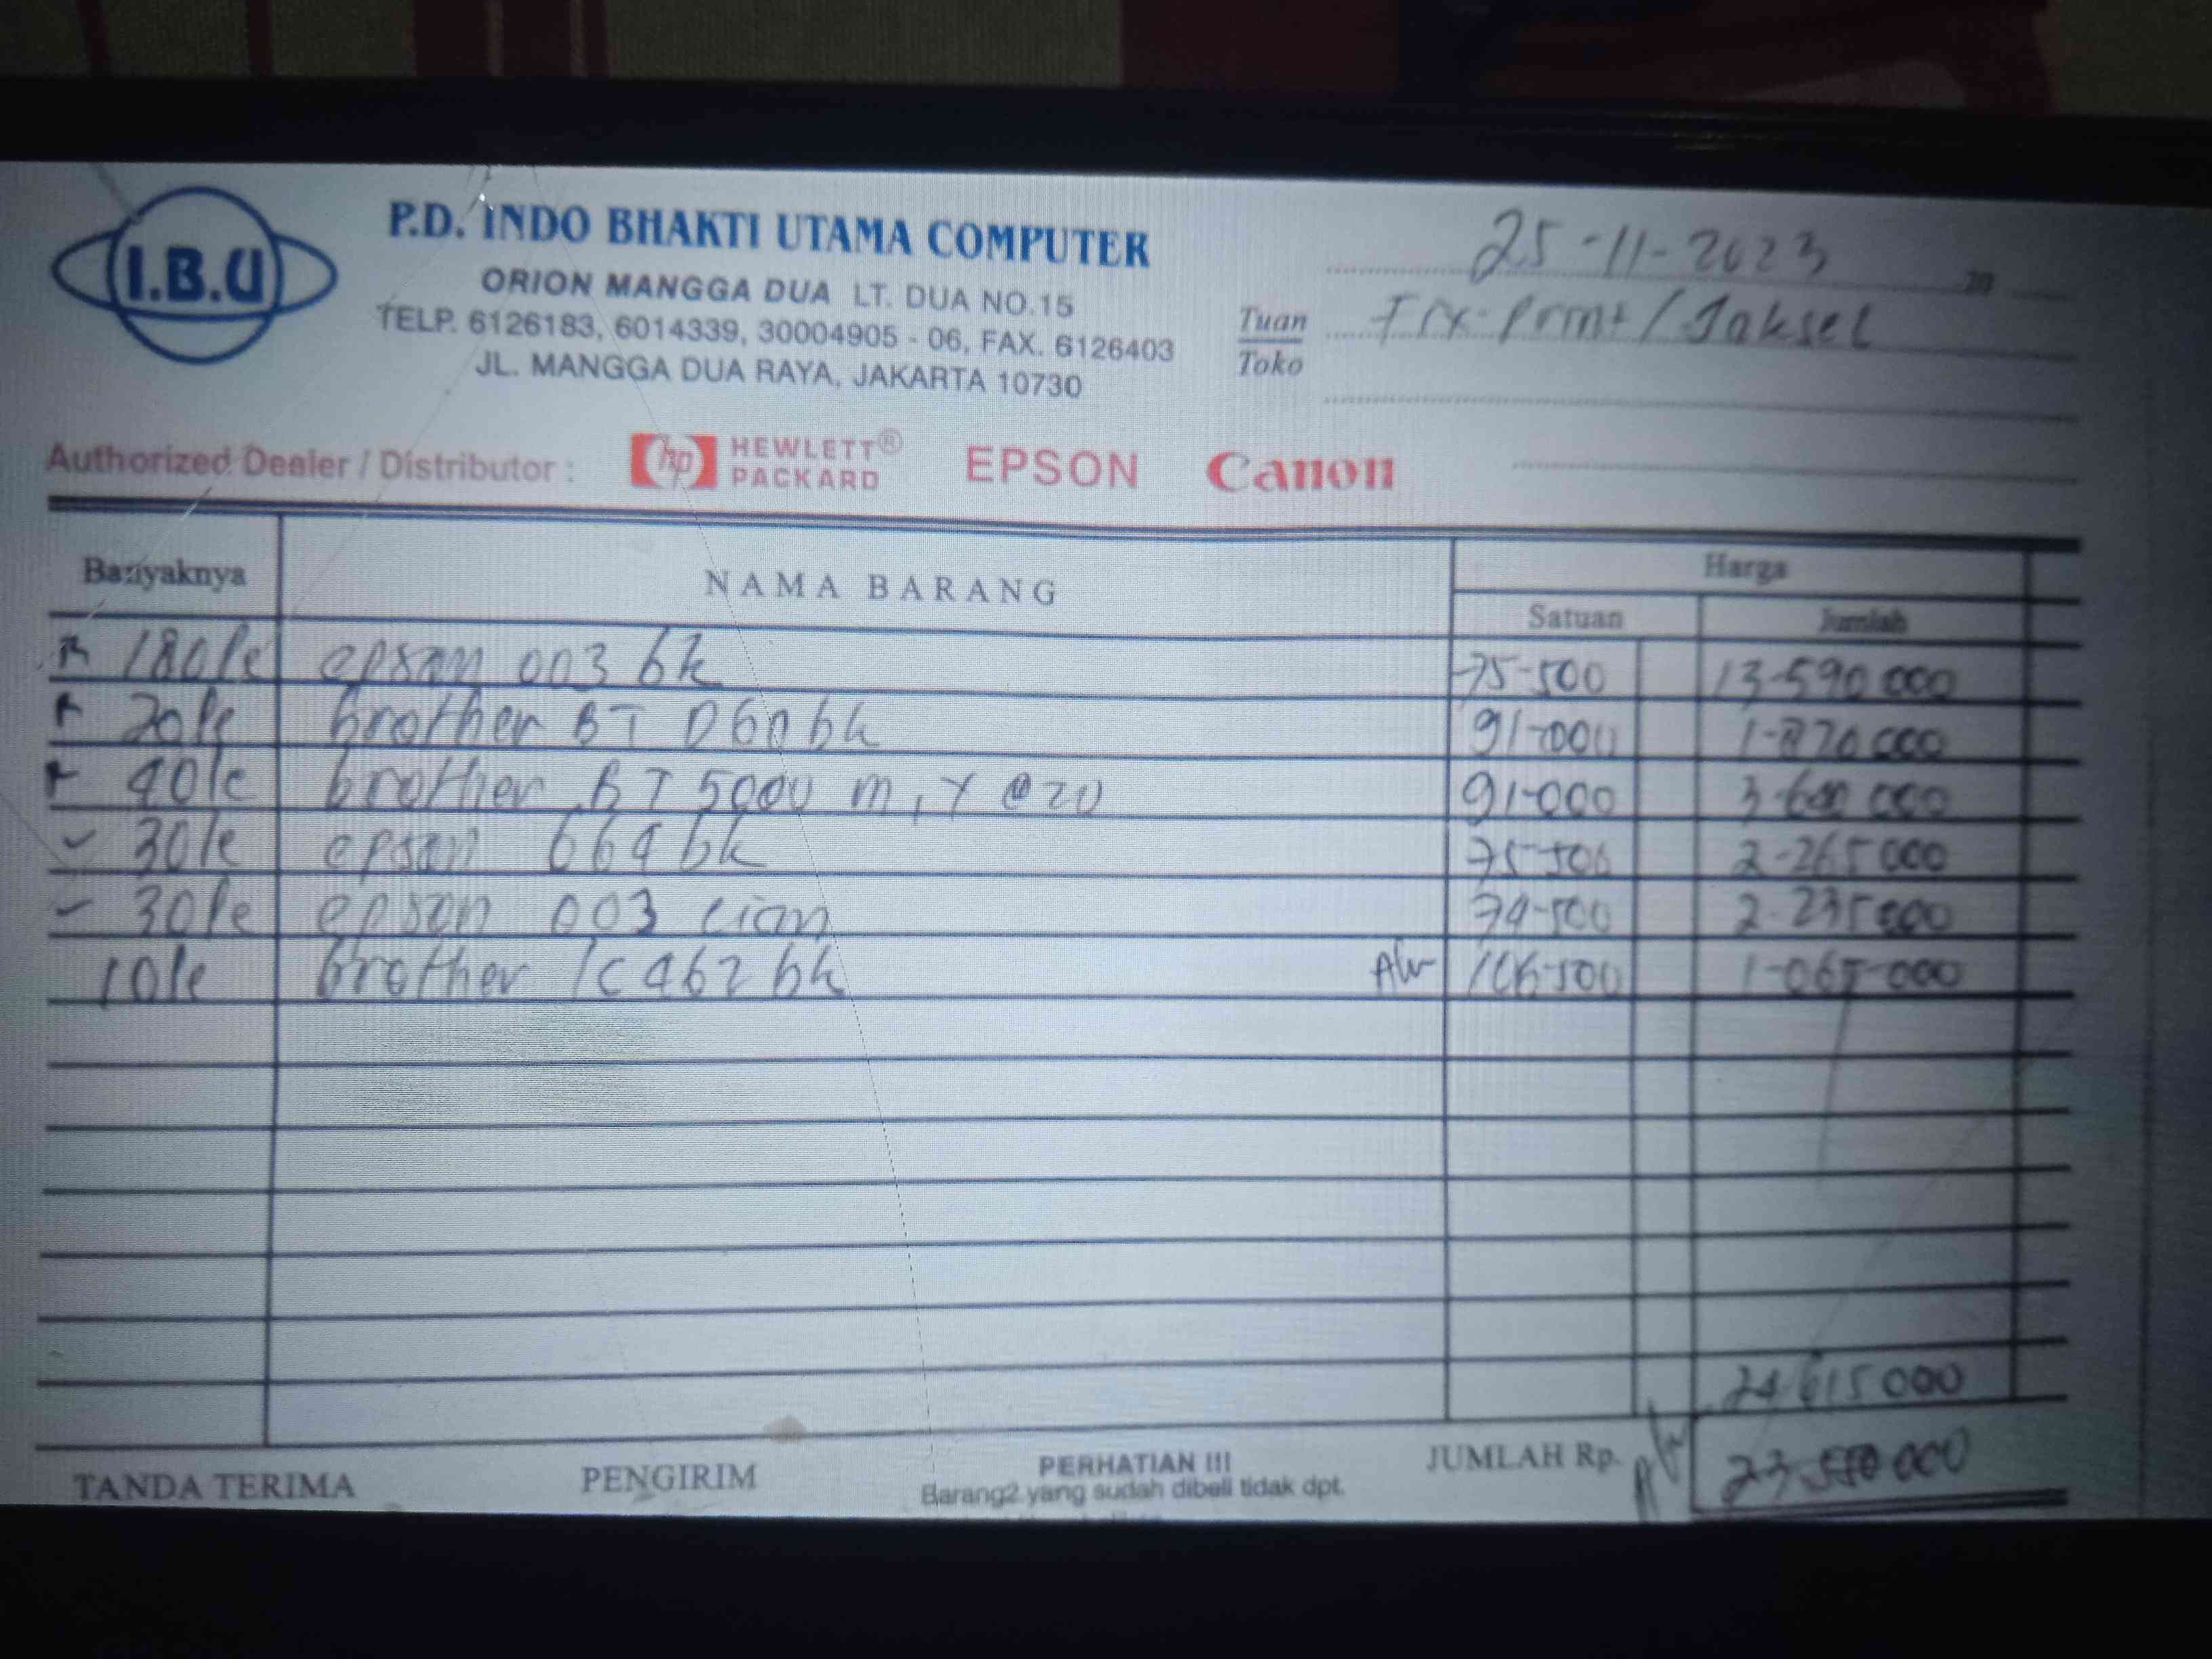 I.B.U
P.D. INDO BHAKTI UTAMA COMPUTER
ORION MANGGA DUA LT. DUA NO.15
TELP. 6126183, 6014339, 30004905 - 06, FAX. 6126403
JL. MANGGA DUA RAYA, JAKARTA 10730
25-11-2023 20
Tuan
Toko
/ Jaksel
Authorized Dealer / Distributor : hp HEWLETT® PACKARD EPSON Canon
Banyaknya NAMA BARANG Harga
Satuan Jumlah
180 epson 003 bk 75-500 13-590 000
20 brother BT D60 bk 91-000
40 brother BT 5000 m, Y @ 20 91-000
30 epson 664 bk 75-500 2-265 000
30 epson 003 74-500 2-235 000
10 brother lc 462 bk 106-500 1-065-000
24 615 000
TANDA TERIMA PENGIRIM PERHATIAN !!! JUMLAH Rp. 23 550 000
Barang2 yang sudah dibeli tidak dpt.